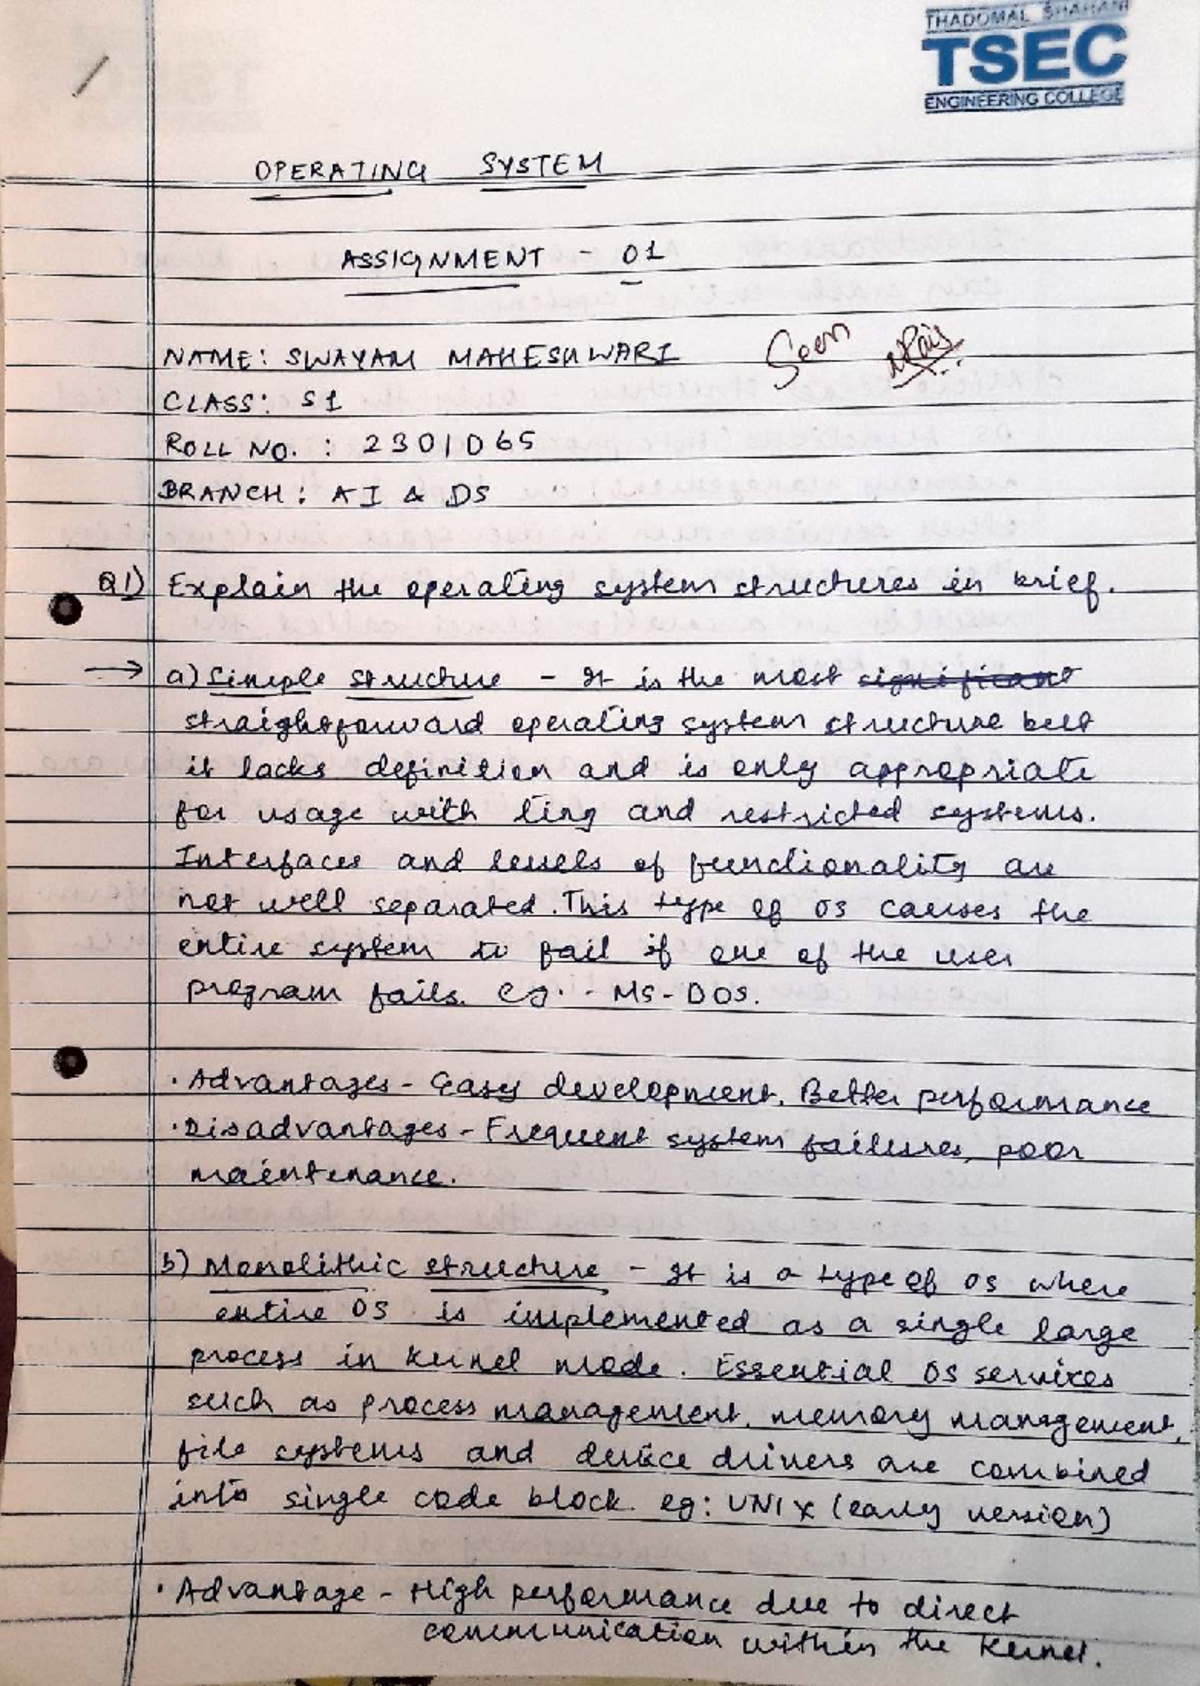 THADOMAL SHAHANI
TSEC
ENGINEERING COLLEGE
OPERATING SYSTEM
ASSIGNMENT - 01
NAME: SWAYAM MAHESHWARI
Seen
CLASS: S1
ROLL NO. : 2301065
BRANCH: AI & DS
Q1) Explain the operating system structures in brief.
→ a) Simple structure - It is the most significant
straightforward operating system structure but
it lacks definition and is only appropriate
for usage with tiny and restricted systems.
Interfaces and levels of functionality are
not well separated. This type of OS causes the
entire system to fail if one of the user
program fails. eg. - MS-DOS.
· Advantages - Easy development, Better performance
· Disadvantages - Frequent system failures, poor
maintenance.
b) Monolithic structure - It is a type of OS where
entire OS is implemented as a single large
process in kernel mode. Essential OS services
such as process management, memory management,
file systems and device drivers are combined
into single code block. eg: UNIX (early version)
· Advantage - High performance due to direct
communication within the kernel.